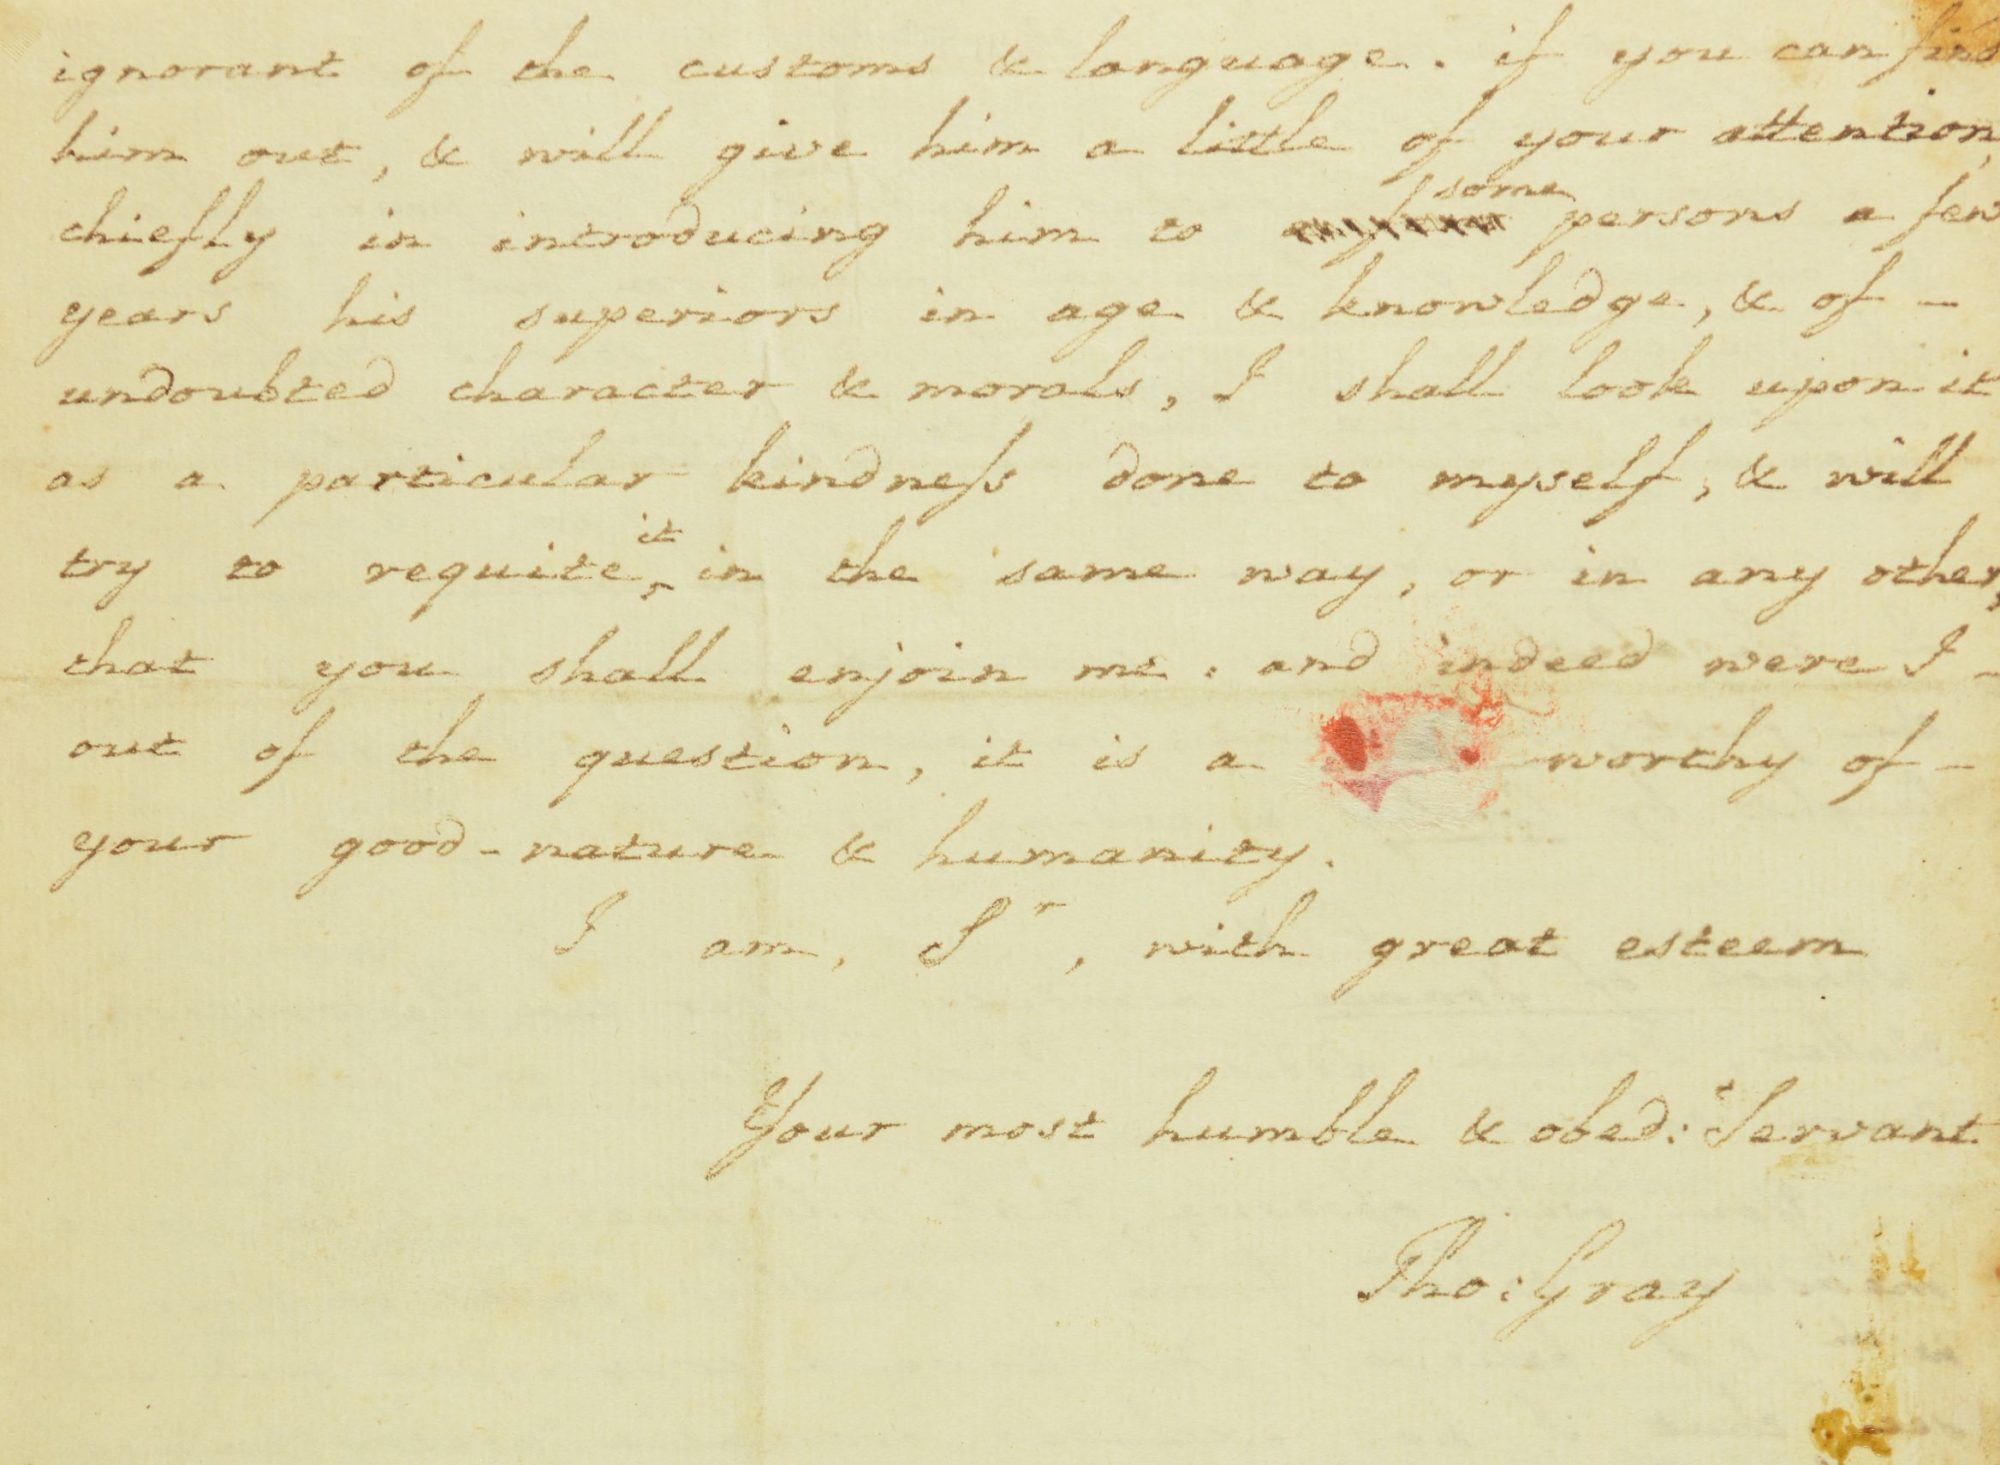 ignorant of the customs & language. if you can find
him out, & will give him a little of your attention,
some
chiefly in introducing him to persons a few
years his superiors in age & knowledge, & of -
undoubted character & morals, I shall look upon it
as a particular kindneſs done to myself, & will
it
try to requite‸ in the same way, or in any other,
that you shall enjoin me. and indeed were I -
out of the question, it is a worthy of -
your good-nature & humanity.
I am, Sʳ, with great esteem
Your most humble & obed:ᵗ Servant
Tho: Gray